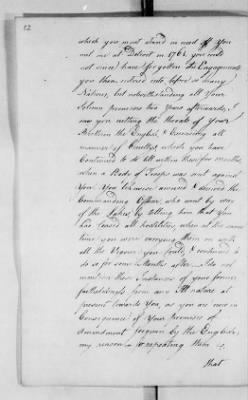 12
which you must stand in need of. You
met me at Detroit in 1761 you could
not since have forgotten the Engagements
you then entered into before so many
Nations, but notwithstanding all Your
Solemn promises two Years afterwards, I
saw you cutting the throats of Your
Brethren the English, & Exercising all
manner of Cruelties which you have
Continued to do till within these few months
when a Body of Troops was sent against
You. You likewise amused & deceived the
Commanding Officer, who went by way
of the Lakes by telling him that You
had ceased all hostilities, when at the same
time you were carrying them on with
all the Vigour you could, & continued to
do so for some Months after.
these Instances of your former
faithlessness from any Ill nature at
present towards You, as you are now in
Consequence of Your Promises of
Amendment forgiven by the English;
my reason for repeating them is,
that